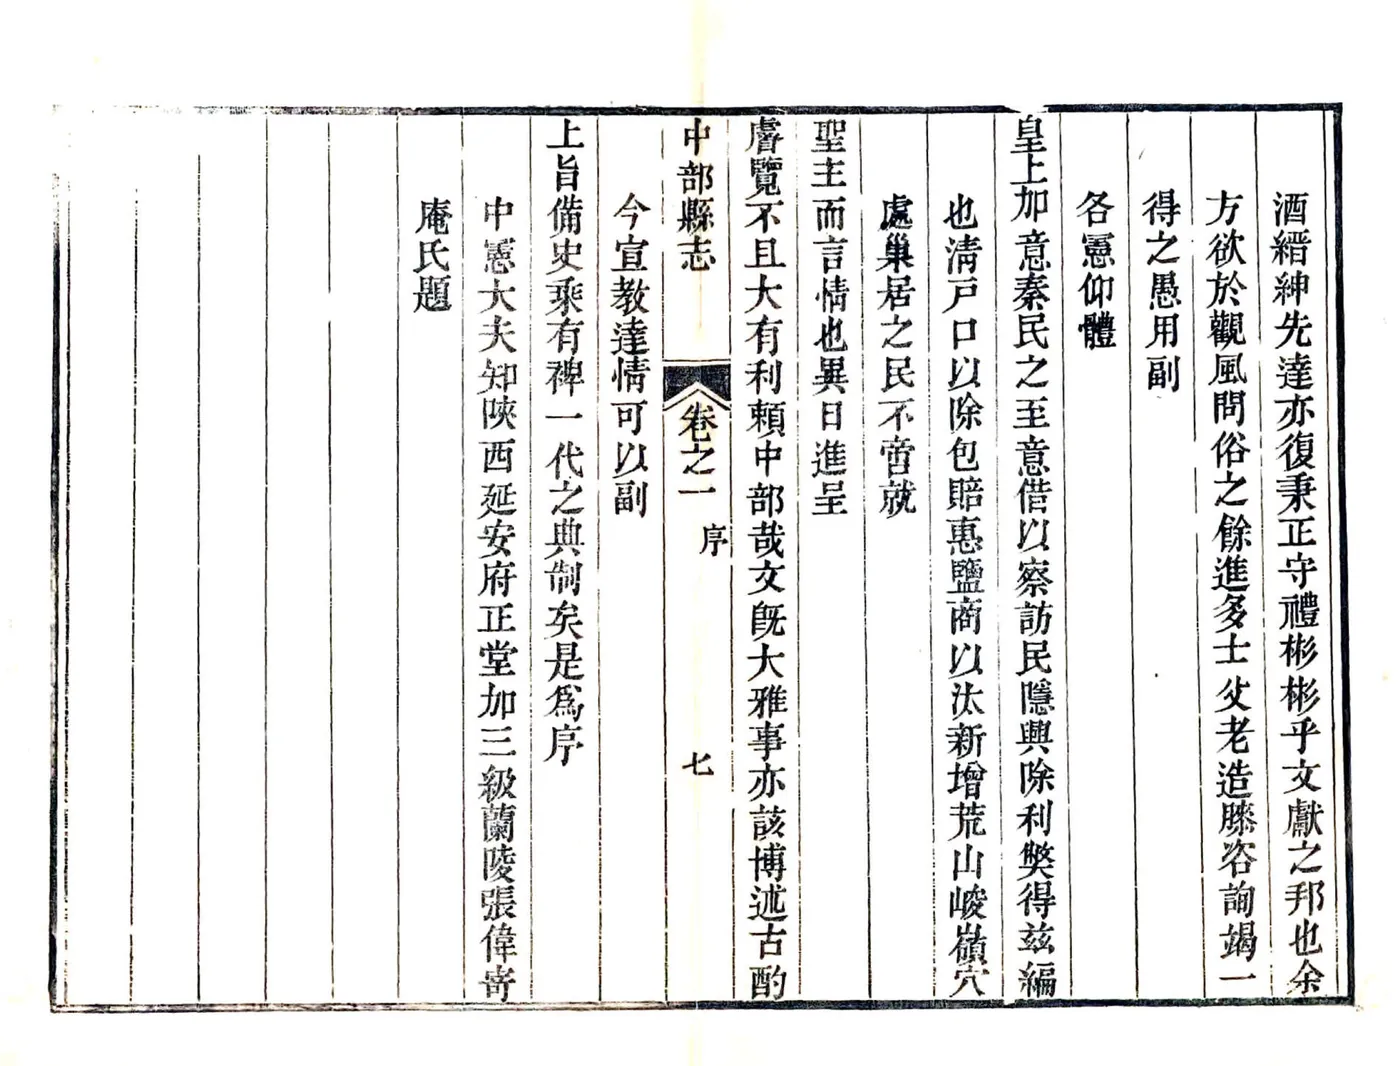 酒縉紳先達亦復秉正守禮彬彬乎文獻之邦也余
方欲於觀風問俗之餘進多士父老造膝咨詢竭一
得之愚用副
各憲仰體
皇上加意秦民之至意借以察訪民隱興除利弊得茲編
也清戸口以除包賠惠鹽商以汰新增荒山峻嶺穴
處巢居之民不啻就
聖主而言情也異日進呈
睿覽不且大有利賴中部哉文旣大雅事亦該博述古酌
中部縣志
卷之一
序
七
今宣教達情可以副
上旨備史乘有裨一代之典制矣是爲序
中憲大夫知陝西延安府正堂加三級蘭陵張偉嵜
庵氏題